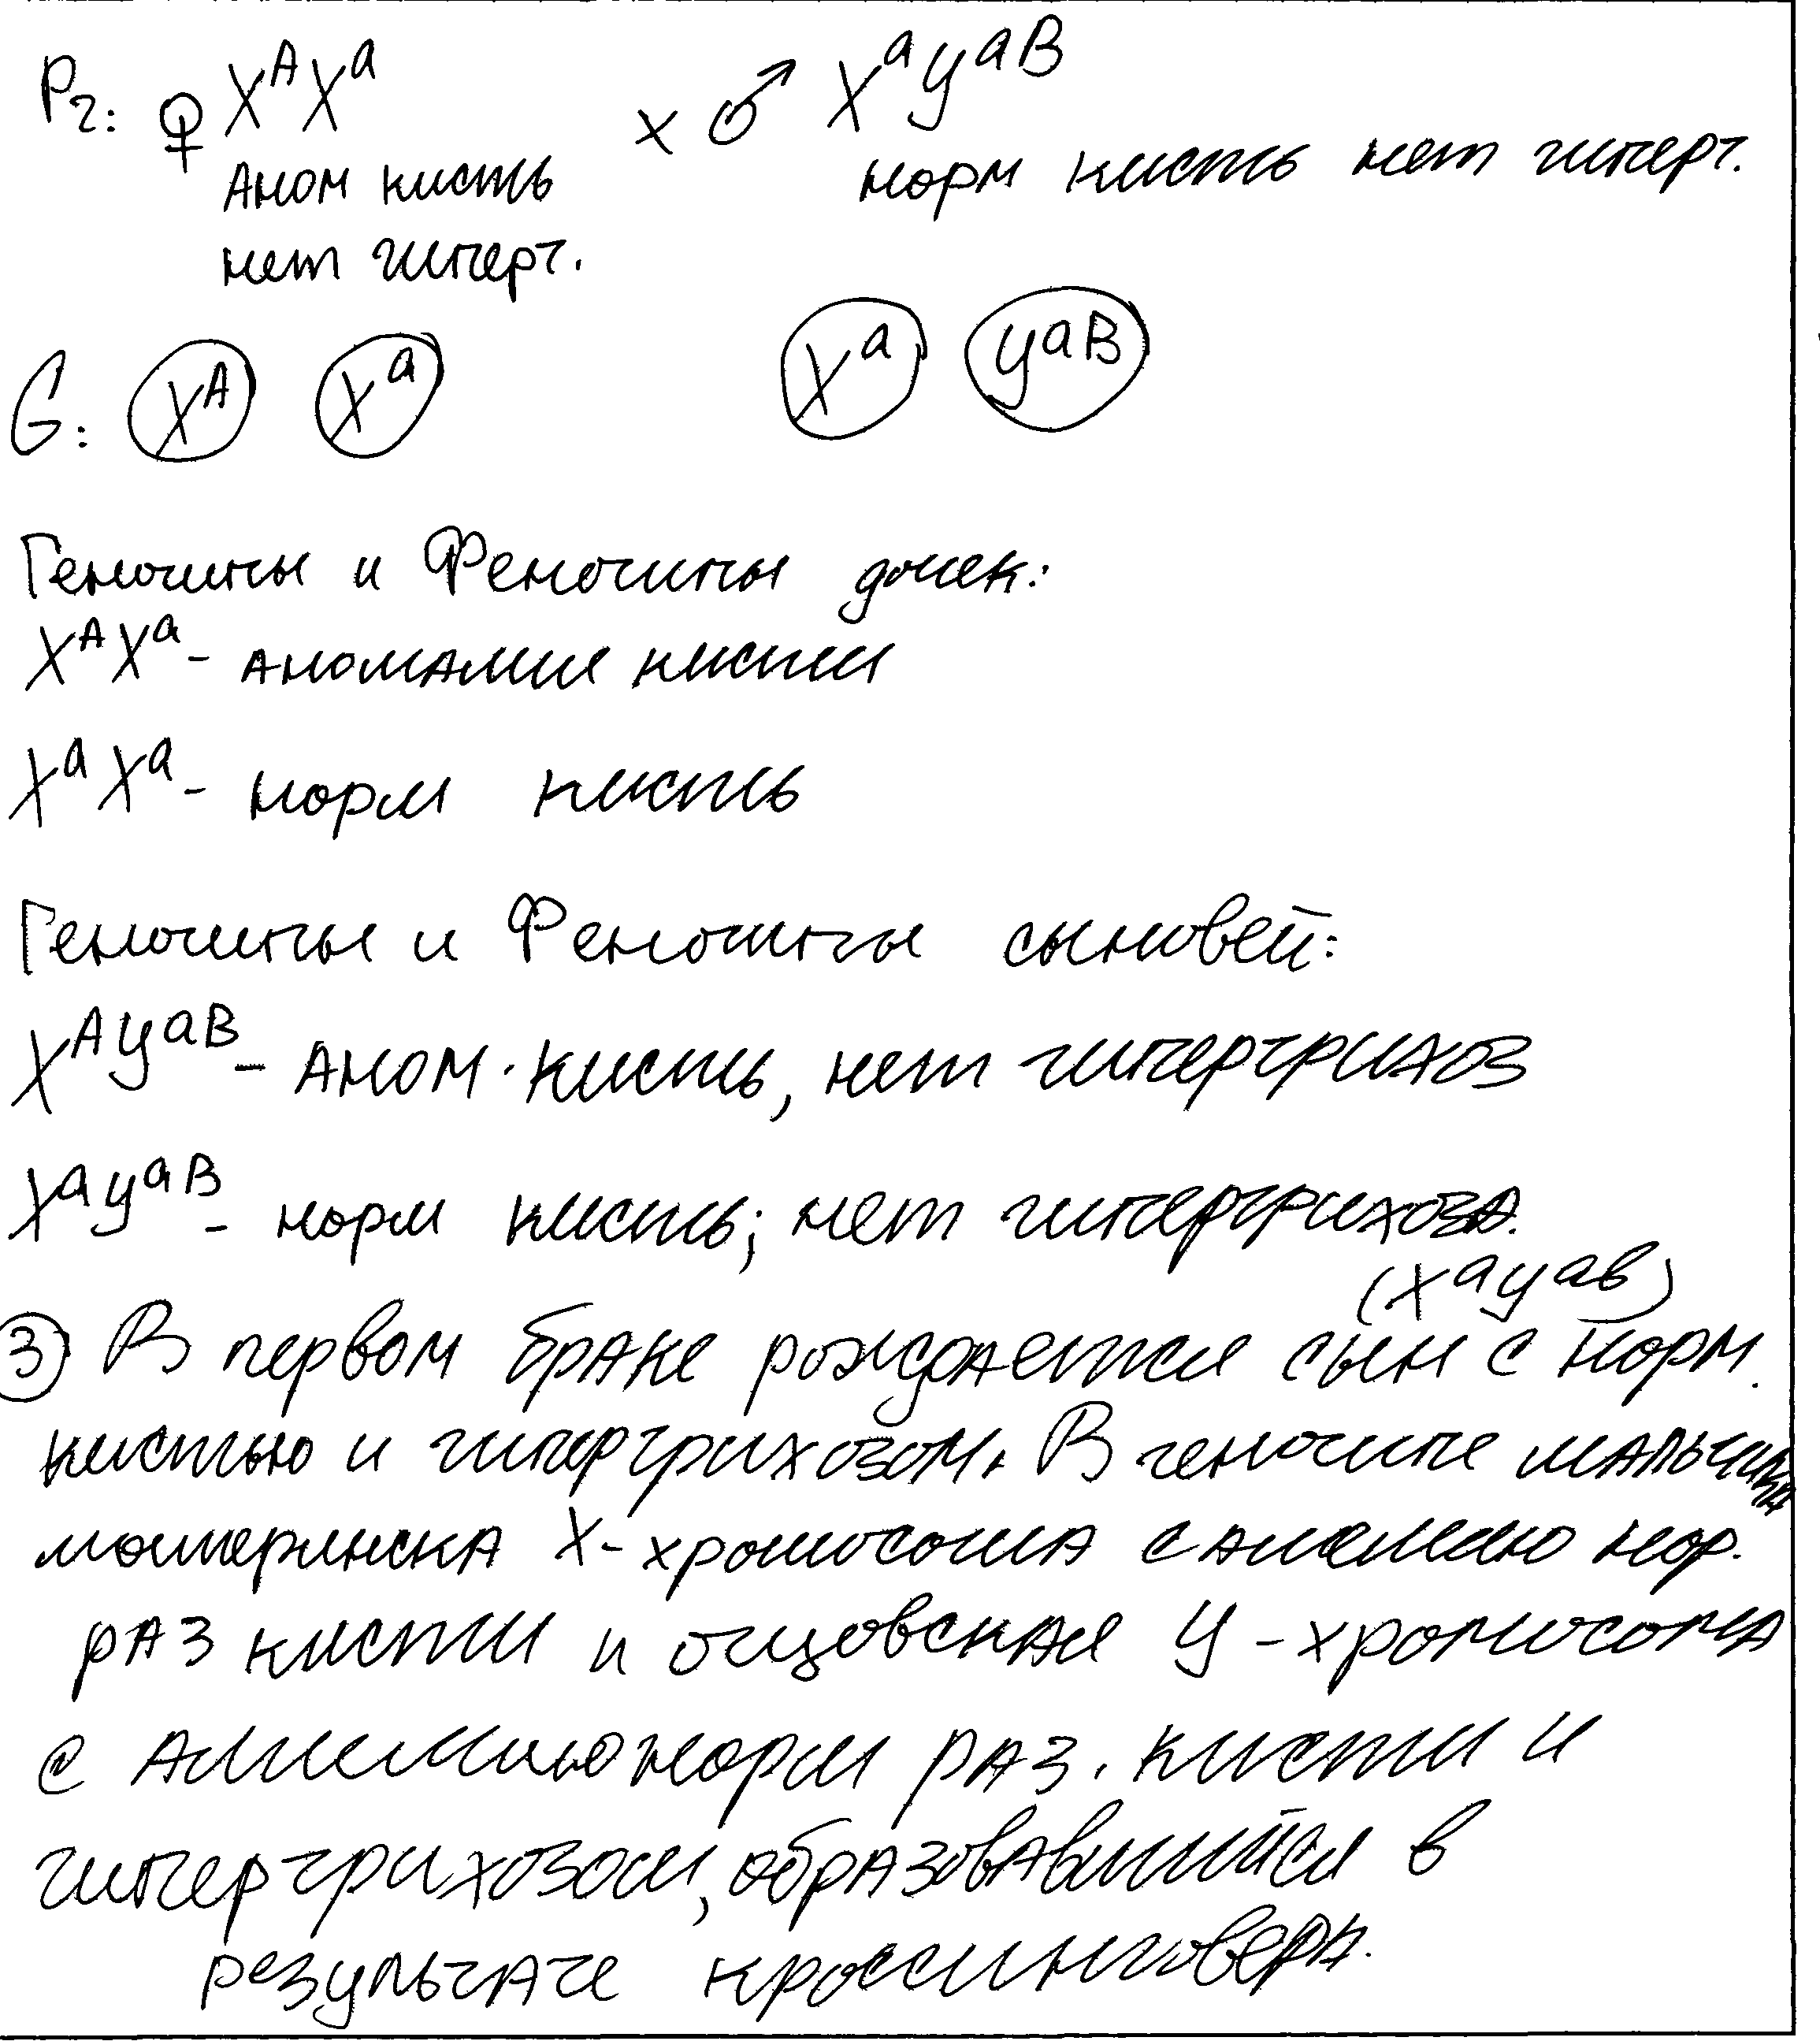 P₂: ♀ XᴬXᵃ x ♂ XᵃYᵃᴮ
Аном кисть норм кисть нет гиперт.
нет гиперт.
G: Xᴬ Xᵃ Xᵃ Yᵃᴮ
Генотипы и Фенотипы дочек:
XᴬXᵃ - аномалия кисти
XᵃXᵃ - норм кисть
Генотипы и Фенотипы сыновей:
XᴬYᵃᴮ - аном. кисть, нет гипертрихоз
XᵃYᵃᴮ - норм кисть; нет гипертрихоза.
(XᵃYᵃᵇ)
3) В первом браке рождается сын с норм.
кистью и гипертрихозом. В генотипе мальчика
материнска X-хромосома с аллелью нор.
раз кисти и отцовская Y-хромосома
с аллелью норм раз. кисти и
гипертрихозом, образовавшийся в
результате кроссинговера.